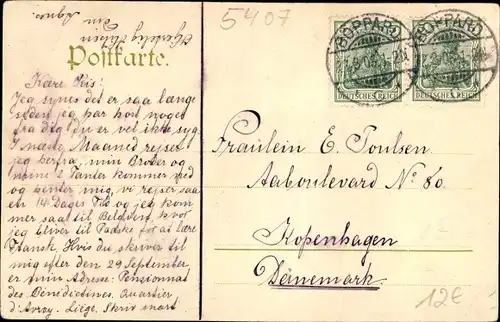 5407
Postkarte.
Kære Sis:
Jeg synes det er saa længe
siden jeg har hørt noget
fra dig! du er vel ikke syg
I næste Maaned rejser
jeg herfra, min Broder og
mine 2 Tanter kommer ned
og henter mig, vi rejser saa
en 14 Dages Tid og jeg kom
mer saa til Belgien, hvor
jeg bliver til Paaske for at lære
Fransk. Hvis du skriver til
mig efter den 29 September
er min Adresse: Pensionnat
des Bénédictines, Quartier
d'Avroy. Liège. Skriv snart
BOPPARD
BOPPARD
DEUTSCHES REICH
DEUTSCHES REICH
Fräulein E. Poulsen
Aaboulevard No 80.
Kopenhagen
Dänemark.
12€